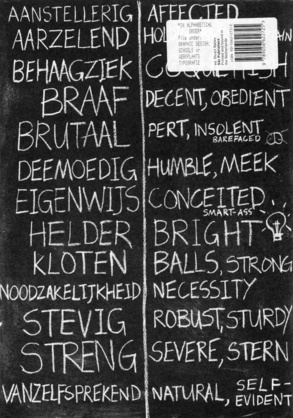 AANSTELLERIG AFFECTED
AARZELEND
BEHAAGZIEK COQUETTISH
BRAAF DECENT, OBEDIENT
BRUTAAL PERT, INSOLENT
BAREFACED
DEEMOEDIG HUMBLE, MEEK
EIGENWIJS CONCEITED...
SMART-ASS
HELDER BRIGHT
KLOTEN BALLS, STRONG
NOODZAKELIJKHEID NECESSITY
STEVIG ROBUST, STURDY
STRENG SEVERE, STERN
VANZELFSPREKEND NATURAL, SELF-
EVIDENT